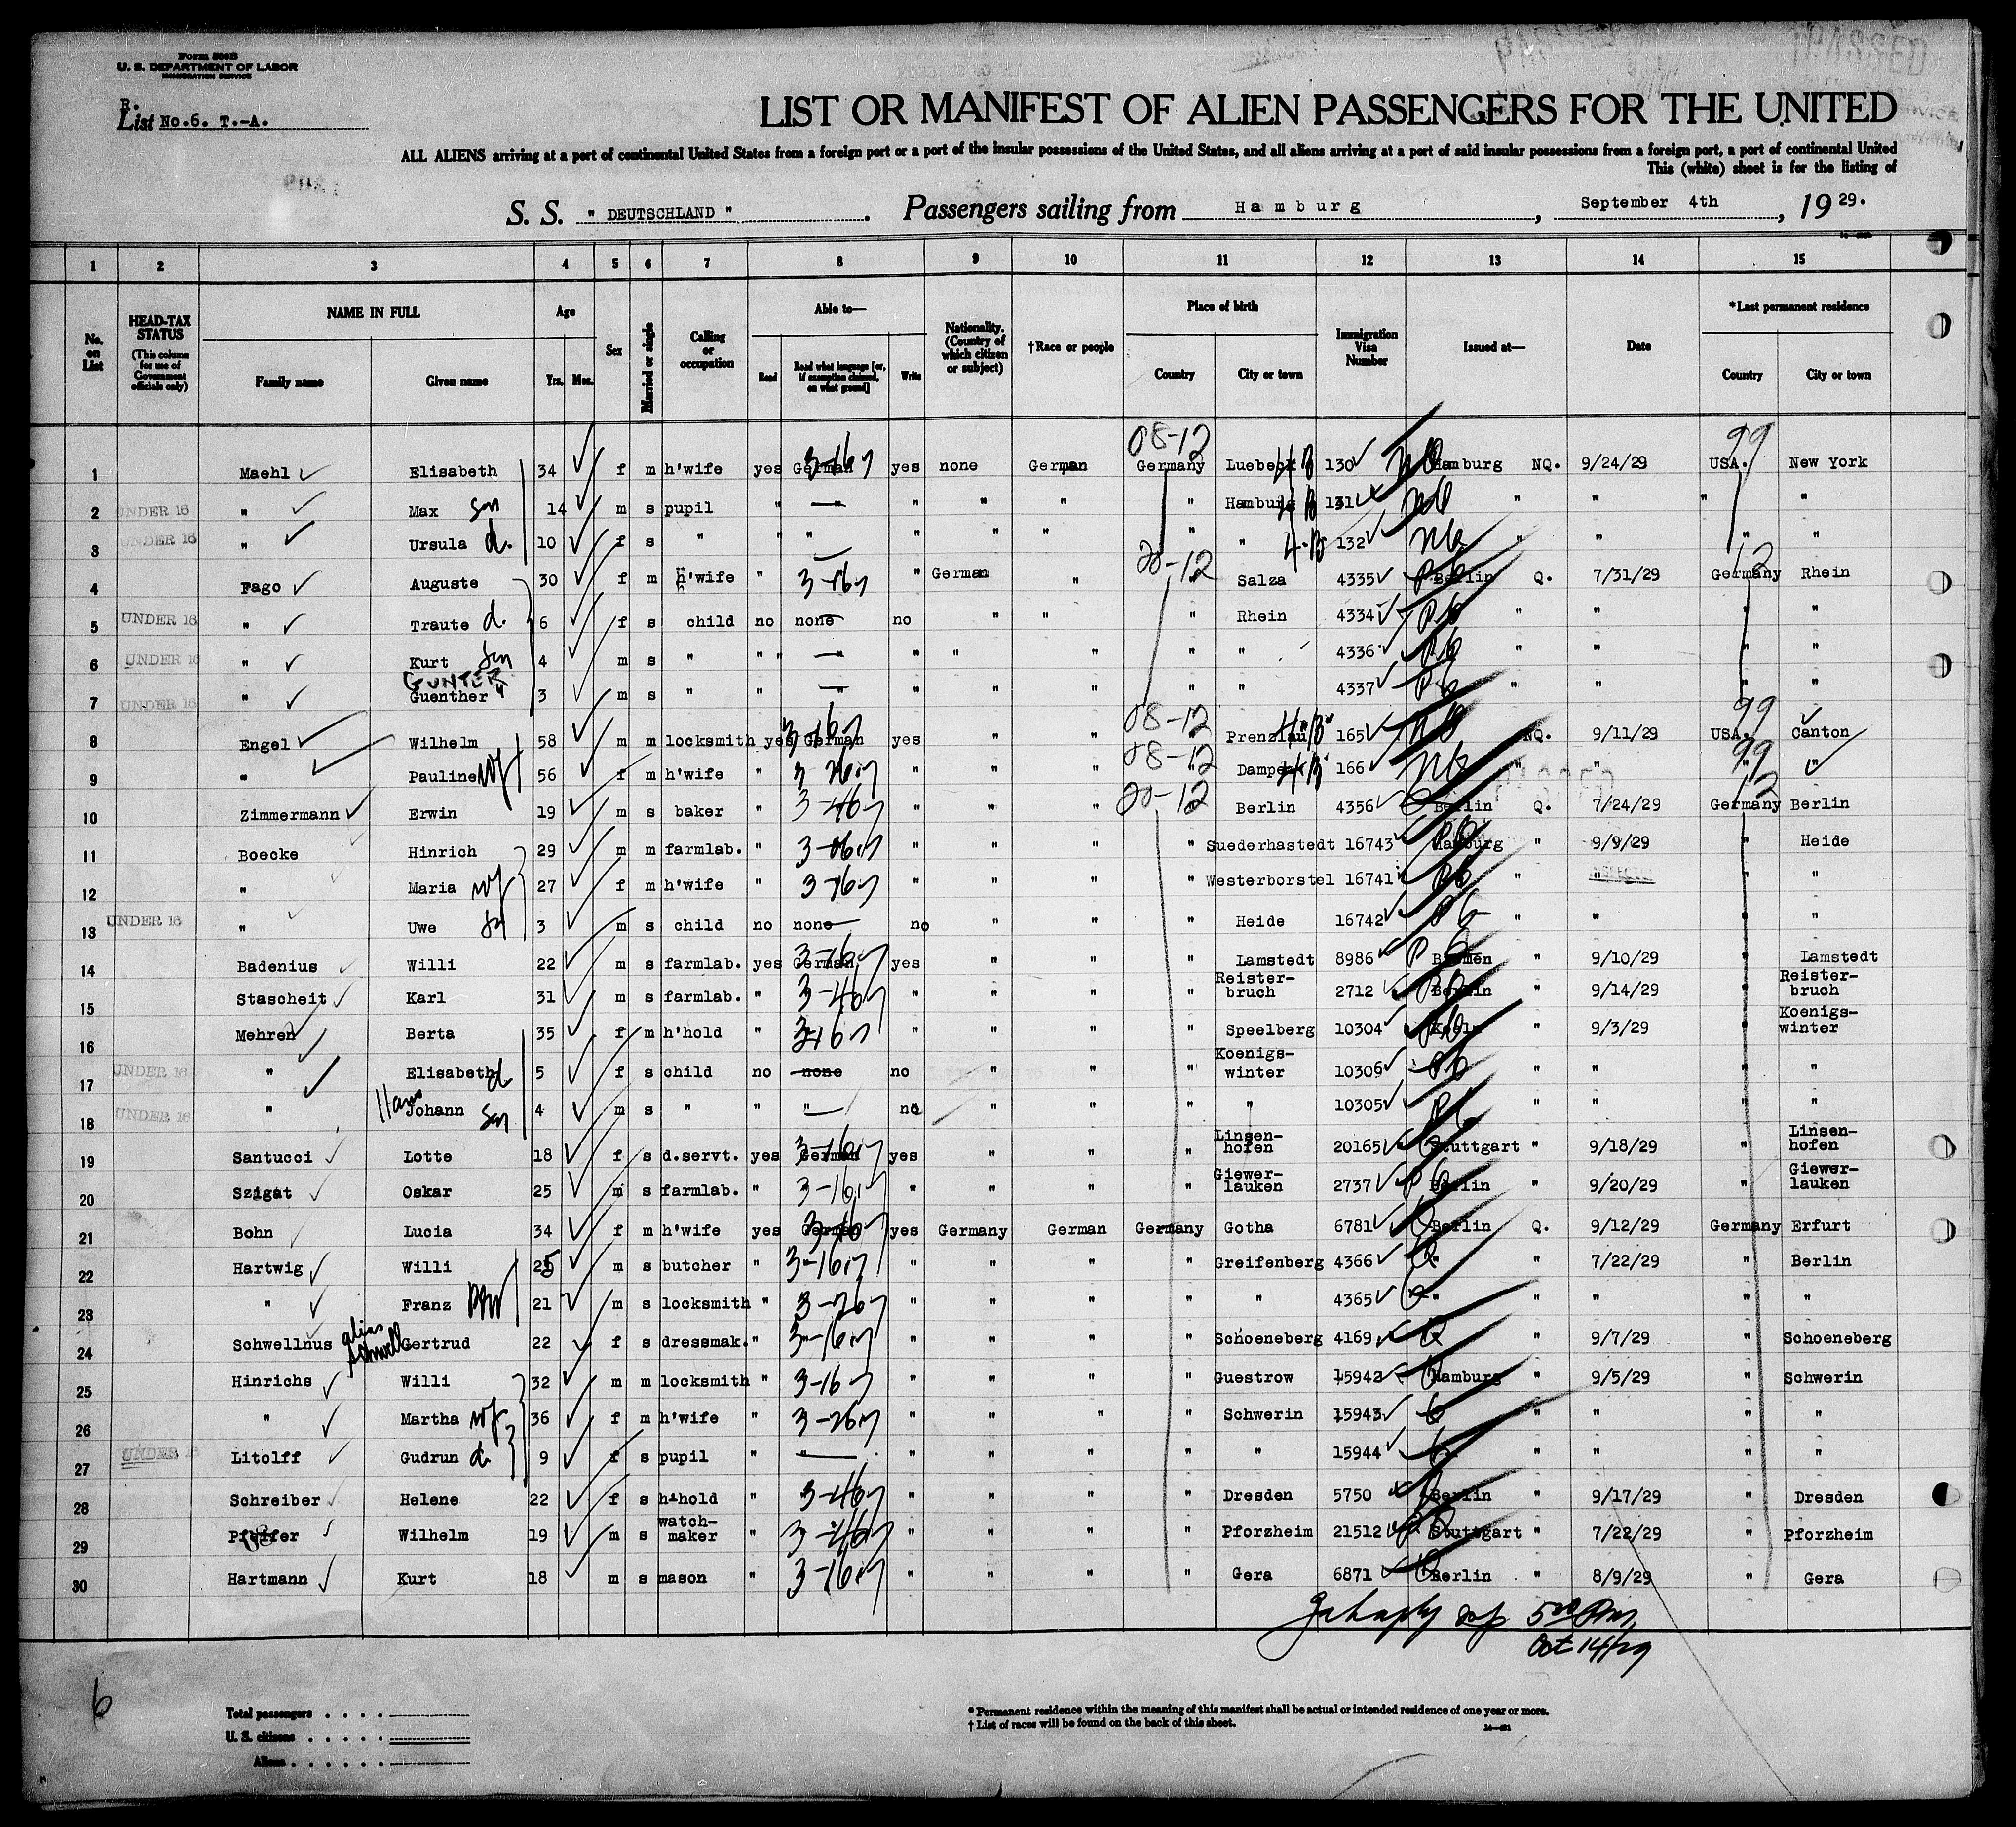 Form 500B
U. S. DEPARTMENT OF LABOR
IMMIGRATION SERVICE
R.
List No.6. T.-A.
PASSED
LIST OR MANIFEST OF ALIEN PASSENGERS FOR THE UNITED
ALL ALIENS arriving at a port of continental United States from a foreign port or a port of the insular possessions of the United States, and all aliens arriving at a port of said insular possessions from a foreign port, a port of continental United
This (white) sheet is for the listing of
S. S. " DEUTSCHLAND " . Passengers sailing from Hamburg , September 4th , 19 29.
1 2 3 4 5 6 7 8 9 10 11 12 13 14 15
No. on List HEAD-TAX STATUS (This column for use of Government officials only) NAME IN FULL Family name Given name Age Yrs. Mos. Sex Married or single Calling or occupation Able to— Read Read what language [or, if exemption claimed, on what ground] Write Nationality. (Country of which citizen or subject) †Race or people Place of birth Country City or town Immigration Visa Number Issued at— Date *Last permanent residence Country City or town
08-12 99
1 Maehl Elisabeth 34 f m h'wife yes German 3-16 yes none German Germany Luebeck 4B 130 Hamburg NQ. 9/24/29 USA. New York
2 UNDER 16 " Max son 14 m s pupil " " " " " " Hamburg 4B 131 " " " "
3 UNDER 16 " Ursula d. 10 f s " " " " " " " " 4-B 132 " " " "
20-12 12
4 Fago Auguste 30 f m h'wife " 3-16 " German " Salza 4335 Berlin Q. 7/31/29 Germany Rhein
5 UNDER 16 " Traute d. 6 f s child no none no " " " Rhein 4334 " " " " "
6 UNDER 16 " Kurt son 4 m s " " " " " " " " 4336 " " " " "
GUNTER
7 UNDER 16 " Guenther " 3 m s " " " " " " " " 4337 " " " "
08-12 99
8 Engel Wilhelm 58 m m locksmith yes German 3-16 yes " " Prenzlau 4B 165 NQ. 9/11/29 USA. Canton
08-12 99
9 " Pauline wf 56 f m h'wife " " " " Dampen 4B 166 " " " "
20-12 12
10 Zimmermann Erwin 19 m s baker " 3-16 " " " Berlin 4356 Berlin Q. 7/24/29 Germany Berlin
11 Boecke Hinrich 29 m m farmlab. " " " " " Suederhastedt 16743 Hamburg " 9/9/29 " Heide
12 " Maria wf 27 f m h'wife " 3-16 " " " " Westerborstel 16741 " " "
13 UNDER 16 " Uwe 3 m s child no none no " " " Heide 16742 " " " "
14 Badenius Willi 22 m s farmlab. yes German 3-16 yes " " " Lamstedt 8986 Bremen " 9/10/29 Lamstedt
15 Stascheit Karl 31 m s farmlab. " " " " " Reister-bruch 2712 Berlin " 9/14/29 " Reister-bruch
16 Mehren Berta 35 f m h'hold " 3-16 " " " " Speelberg 10304 Koeln " 9/3/29 " Koenigs-winter
17 UNDER 16 " Elisabeth d 5 f s child no none no " " " Koenigs-winter 10306 " " " "
18 UNDER 16 " Hans Johann son 4 m s " " " no " " " " 10305 " " " "
19 Santucci Lotte 18 f s d.servt. yes German 3-16 yes " " " Linsen-hofen 20165 Stuttgart " 9/18/29 " Linsen-hofen
20 Szigat Oskar 25 m s farmlab. " 3-16 " " " " Giewer-lauken 2737 Berlin " 9/20/29 " Giewer-lauken
21 Bohn Lucia 34 f m h'wife yes German 3-16 yes Germany German Germany Gotha 6781 Berlin Q. 9/12/29 Germany Erfurt
22 Hartwig Willi 25 m s butcher " 3-16 " " " " Greifenberg 4366 " " 7/22/29 " Berlin
23 " Franz 21 m s locksmith " 3-26 " " " " " 4365 " " " " "
24 Schwellnus alias Schwell Gertrud 22 f s dressmak. " 3-16 " " " " Schoeneberg 4169 " 9/7/29 " Schoeneberg
25 Hinrichs Willi 32 m m locksmith " 3-16 " " " " Guestrow 15942 Hamburg " 9/5/29 " Schwerin
26 " Martha wf 36 f m h'wife " 3-26 " " " " Schwerin 15943 " " " "
27 UNDER 16 Litolff Gudrun d. 9 f s pupil " " " " " " " 15944 " " " "
28 Schreiber Helene 22 f s h'hold " 3-46 " " " " Dresden 5750 Berlin " 9/17/29 " Dresden
29 Pfeiffer Wilhelm 19 m s watch-maker " 3-46 " " " " Pforzheim 21512 Stuttgart " 7/22/29 " Pforzheim
30 Hartmann Kurt 18 m s mason " 3-16 " " " " Gera 6871 Berlin " 8/9/29 " Gera
Oct 14/29
6
Total passengers . . . .
U. S. citizens . . . . .
Aliens . . . . . .
* Permanent residence within the meaning of this manifest shall be actual or intended residence of one year or more.
† List of races will be found on the back of this sheet.